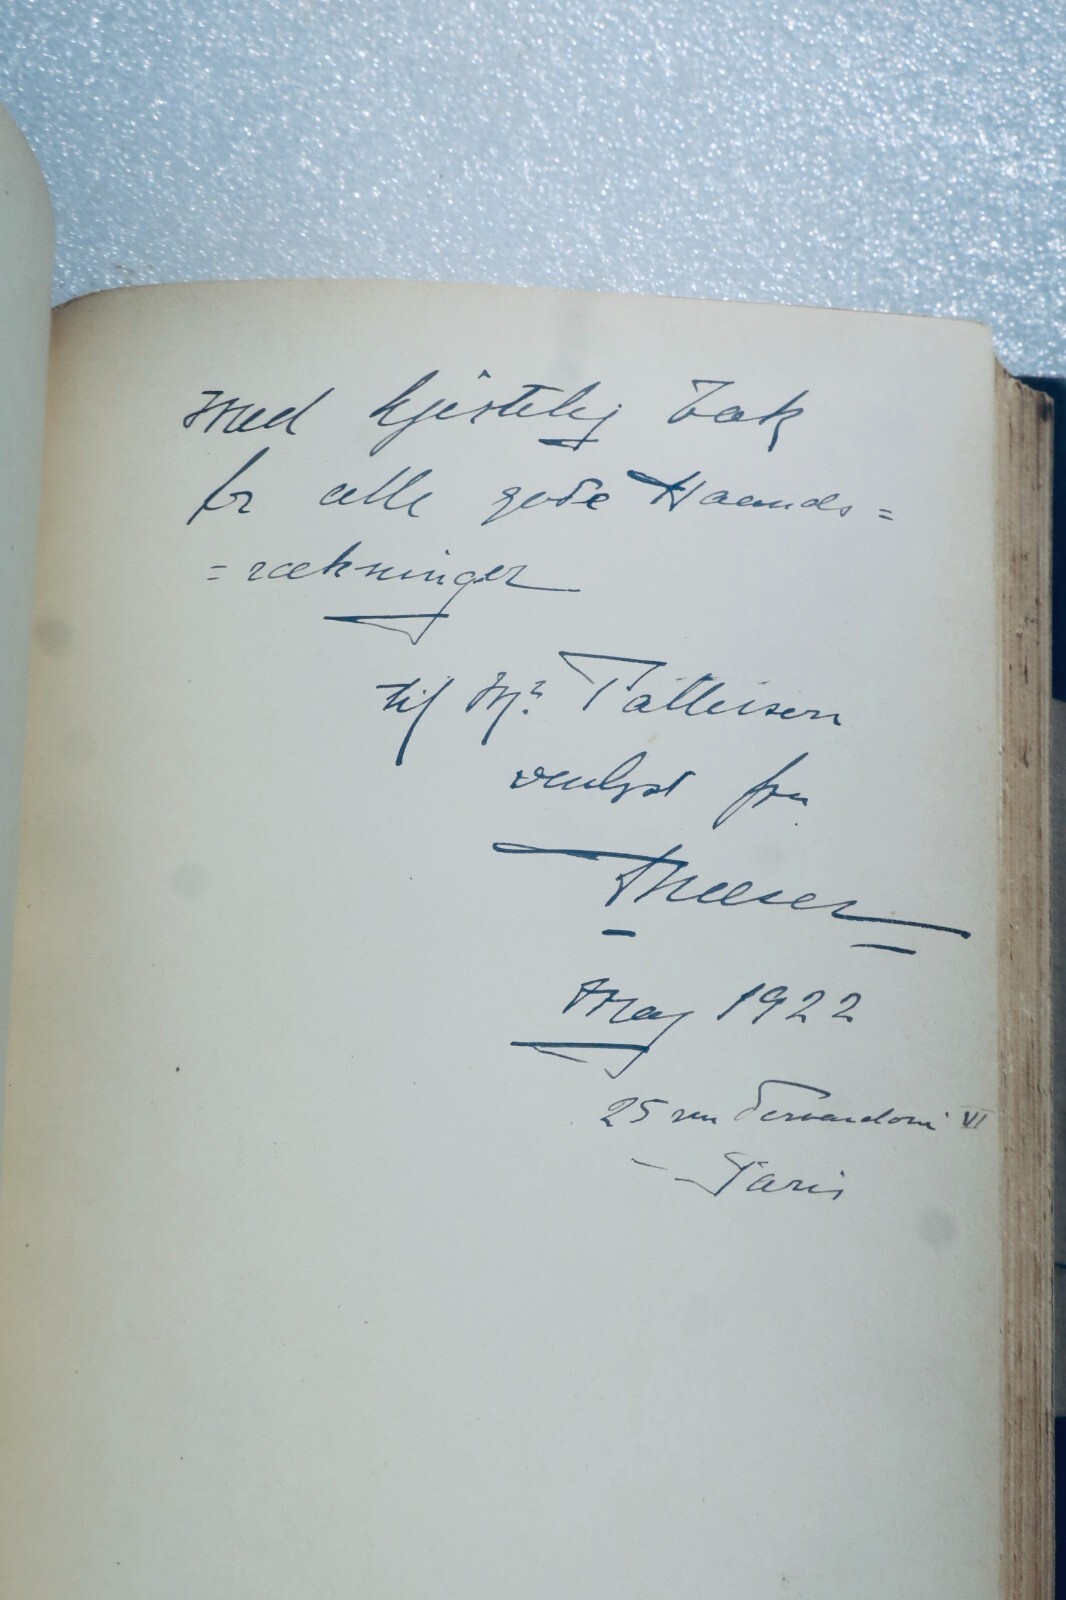 Med hjertelig Tak
for alle gode Haands=
=rækninger
til Mr.
venligst fra
May 1922
25 rue Servandoni VI
Paris